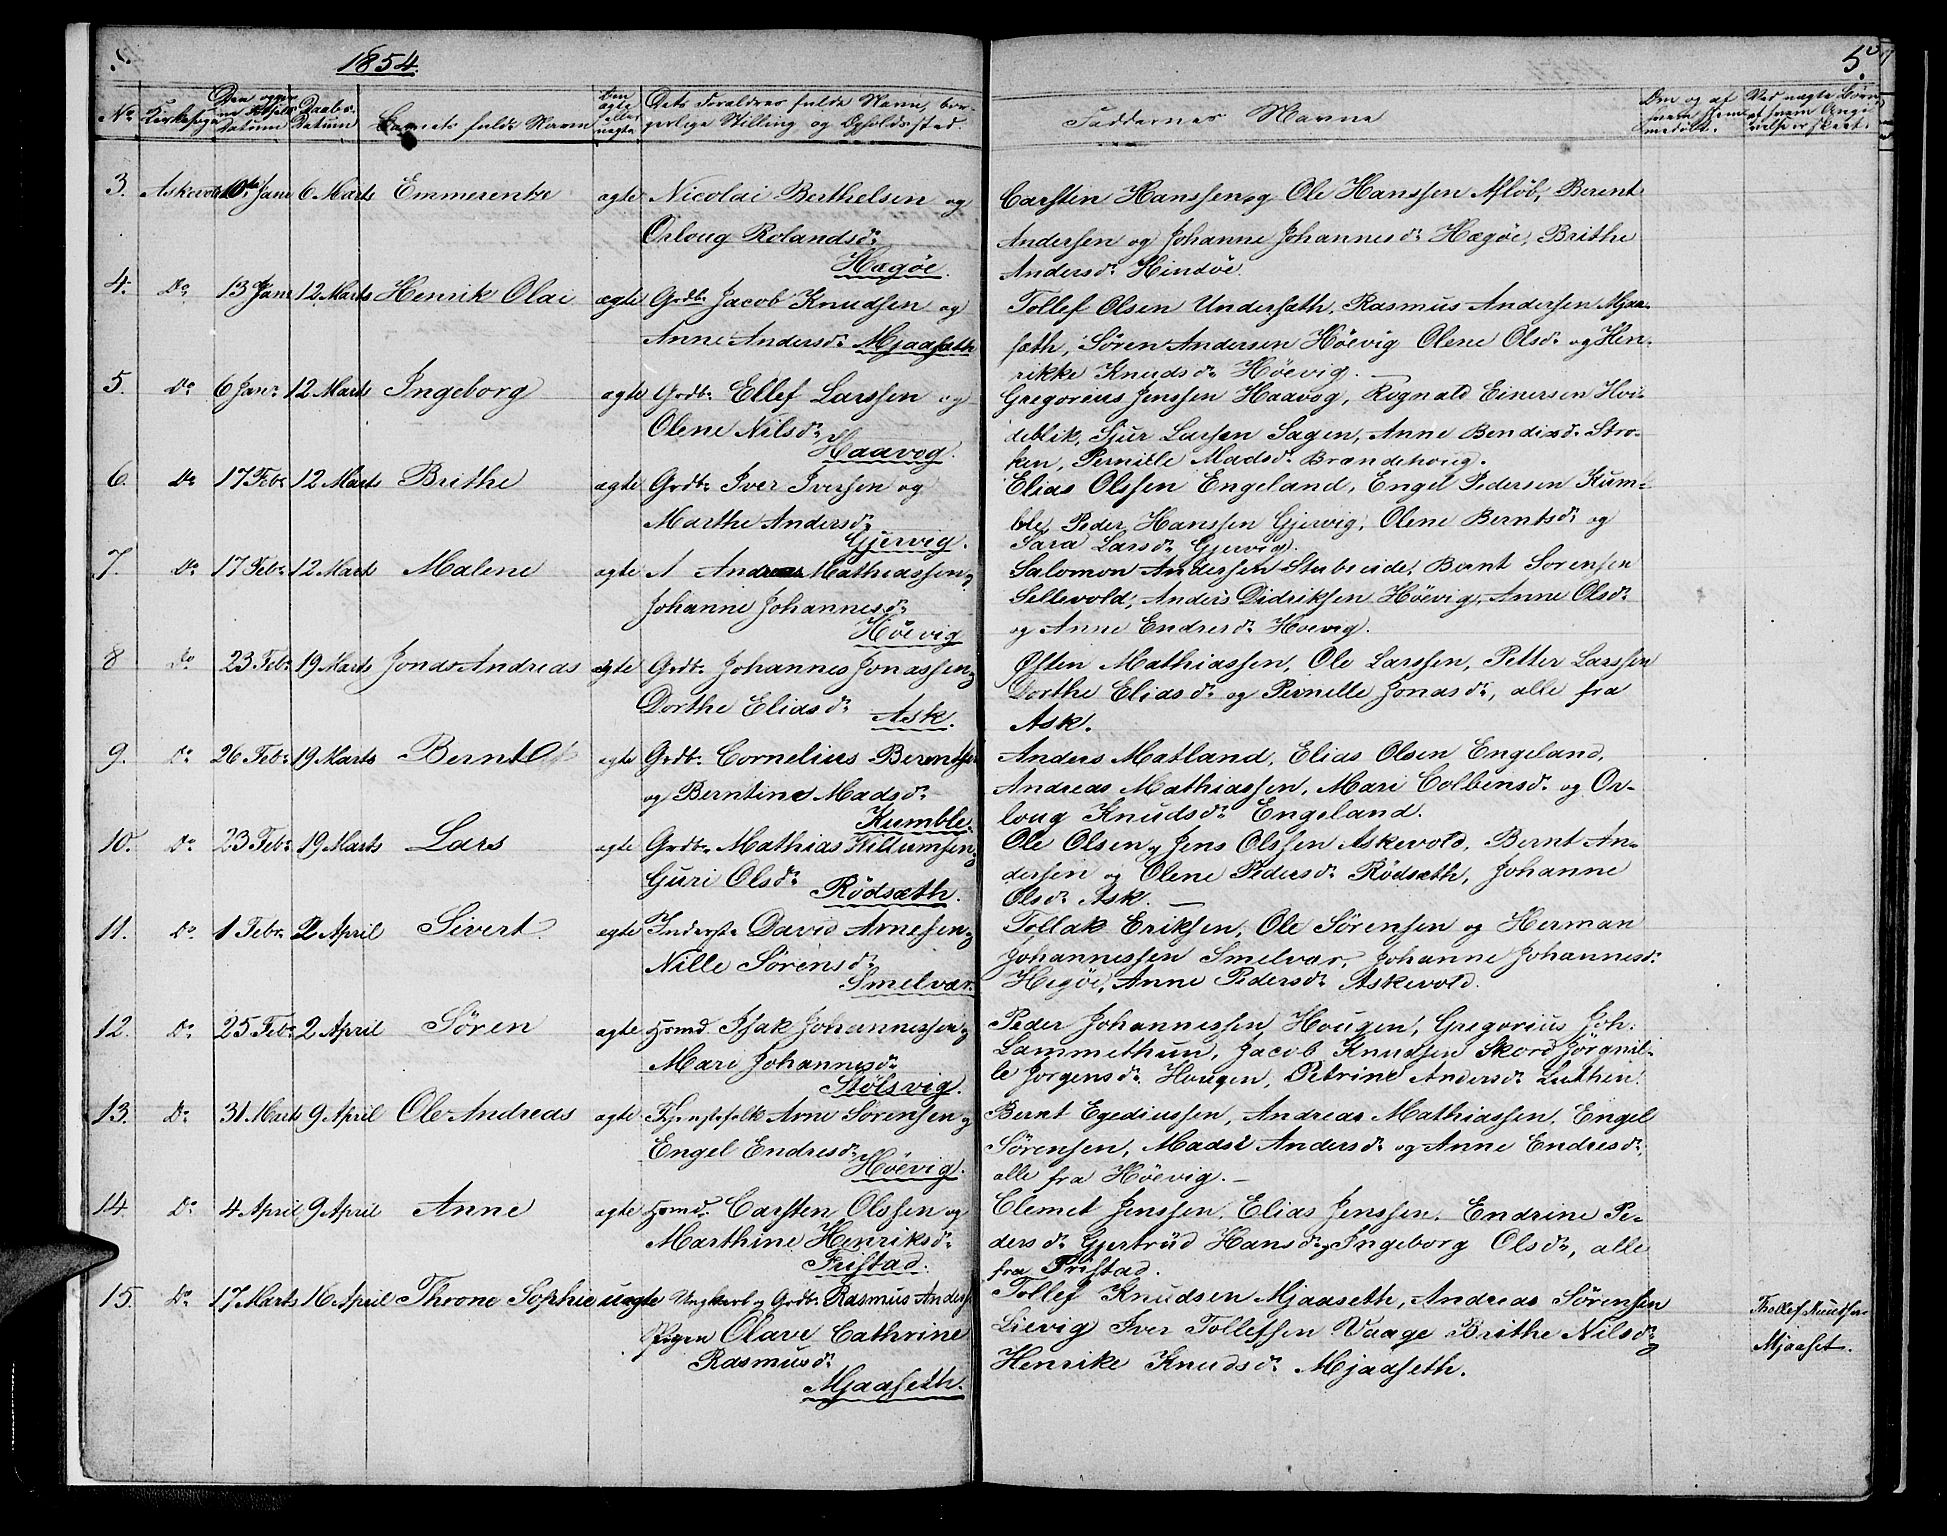 1854.
5.
No. Kirkesogn Datum Daabs Datum Barnets fulde Navn ægte eller uægte Dets Forældres fulde Navn, bor-
gerlige Stilling og Opholdssted.
Faddernes Navne
3. Askevold 10de Janr 6 Marts Emmerentze ægte Nicolai Berthelsen og
Orloug Rolandsdr
Hægøe.
Carsten Hanssen og Ole Hanssen Afløb, Berent
Andersen og Johanne Johannesdr Hægøe, Brithe
Andersdr Hindøe.
4. Do 13 Janr 12 Marts Henrik Olai ægte Grdbr Jacob Knudsen og
Anne Andersdr Mjaaseth
Tollef Olsen Undersæth, Rasmus Andersen Mjaa-
sæth, Søren Andersen Høevig Olene Olsdr og Hen-
rikke Knudsdr Høevig.
5. Do 6 Janr 12 Marts Ingeborg ægte Grdbr Ellef Larssen og
Olene Nilsdr
Haavog.
Gregorius Jenssen Haavog, Rognald Einersen Hvi-
deblik, Sjur Larsen Sagen, Anne Bendixdr Stro-
ken, Pernille Madsdr Brandehovig.
6. Do 17 Febr 12 Marts Brithe ægte Grdbr Iver Iversen og
Marthe Andersdr
Gjervig.
Elias Olssen Engeland, Engel Pedersen Kum-
ble, Peder Hanssen Gjervig, Olene Berntsdr og
Sara Larsdr Gjervig.
7. Do 17 Febr 12 Marts Malene ægte Andreas Mathiassen og
Johanne Johannesdr
Høevig
Salomon Andersen Stubseide, Bernt Sørensen
Sellevold, Anders Didriksen Høevig, Anne Olsdr
og Anne Endresdr Høevig.
8 Do 23 Febr 19 Marts Jonas Andreas ægte Grdbr Johannes Jonassen og
Dorthe Eliasdr Ask.
Østen Mathiassen, Ole Larssen, Petter Larssen
Dorthe Eliasdr og Pernille Jonasdr, alle fra
Ask.
9. Do 26 Febr 19 Marts Bernt ægte Grdbr Cornelius Berentsen
og Berntine Madsdr
Kumble.
Anders Matland, Elias Olsen Engeland,
Andreas Mathiassen, Mari Colbensdr og Or-
loug Knudsdr Engeland.
10. Do 23 Febr 19 Marts Lars ægte Grdbr Mathias Killumsen og
Guri Olsdr Rödsæth.
Ole Olsen og Jens Olssen Askevold, Bernt An-
dersen og Olene Pedersdr Rödsæth, Johanne
Olsdr Ask.
11. Do 1 Febr 2 April Sivert ægte Inderste David Arnesen og
Nille Sörensdr
Smelvær.
Tollak Eriksen, Ole Sörensen og Herman
Johannessen Smelvær, Johanne Johannesdr
Hegøe, Anne Pedersdr Askevold.
12. Do 25 Febr 2 April Søren ægte Hsmd. Isak Johannessen og
Mari Johannesdr
Stølsvig.
Peder Johannessen Hougen, Gregorius Joh:
Lammethun, Jacob Knudsen Skord Jörgnil-
le Jorgensdr Hougen, Petrine Andersdr Luthen.
13. Do 31 Marts 9 April Ole Andreas ægte Tjenstefolk Arne Sørensen og
Engel Endresdr
Høevig.
Bernt Egediussen, Andreas Mathiassen, Engel
Sørensen, Madsi Andersdr og Anne Endresdr,
alle fra Høevig.
14. Do 4 April 9 April Anne ægte Hsmd. Carsten Olssen og
Marthine Henriksdr
Fristad.
Clemet Jenssen, Elias Jenssen, Endrine Pe-
dersdr Gjertrud Hansdr og Ingeborg Olsdr, alle
fra Fristad.
15. Do 17 Marts 16 April Throne Sophie uægte Ungkarl og Grdbr Rasmus Anders
Pigen Olave Cathrine
Rasmusdr
Mjaaseth.
Tollef Knudsen Mjaaseth, Andreas Sørensen
Lievig Iver Tollefssen Vaage Brithe Nilsdr og
Henrike Knudsdr Mjaaseth.
Thollef Knudsen
Mjaaset.